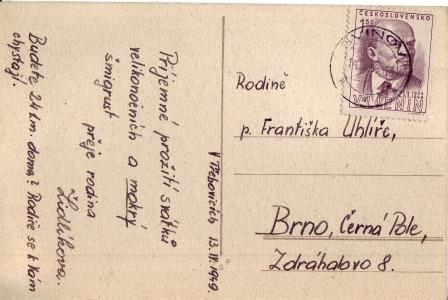 Příjemné prožití svátků
velikonočních a mokrý
šmigrust
přeje rodina
Židlíkova.
Budete 24 t.m. doma? Rodiče se k Vám
chystají.
V Třebovicích 13.IV.1949.
ČESKOSLOVENSKO
1.50
V.I. LENIN
SVINOV
Rodině
p. Františka Uhlíře,
Brno, Černá Pole,
Zdráhalovo 8.